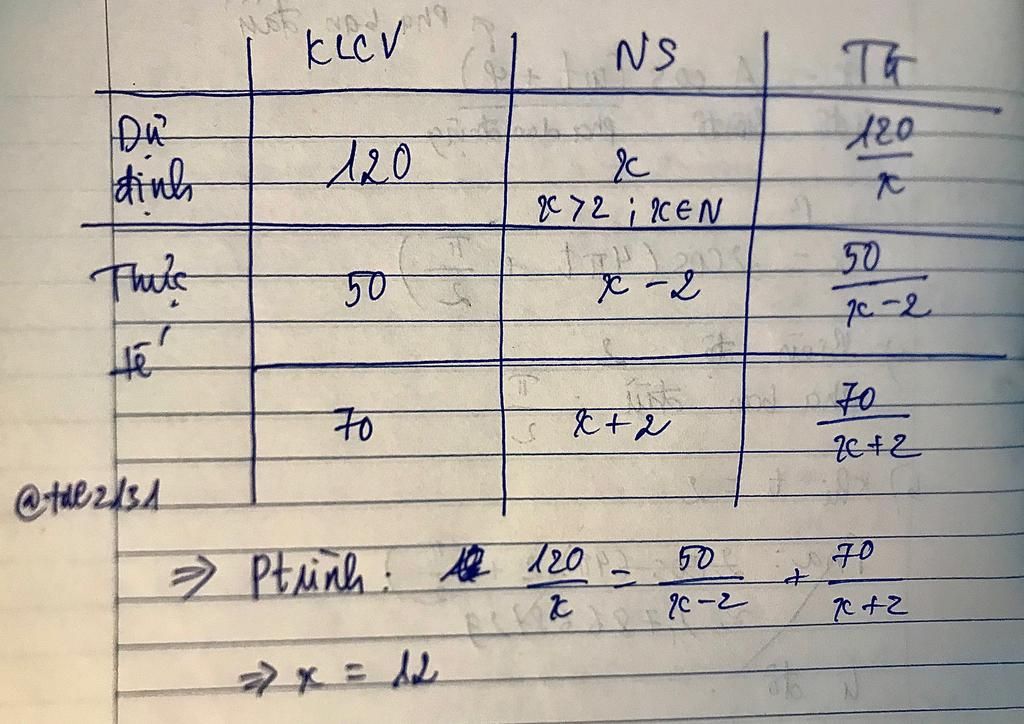 KLCV NS TG
Dự định 120 x 120/x
x>2 ; x∈N
Thực tế 50 x-2 50/(x-2)
70 x+2 70/(x+2)
⇒ Ptrình: 120/x = 50/(x-2) + 70/(x+2)
⇒ x = 12